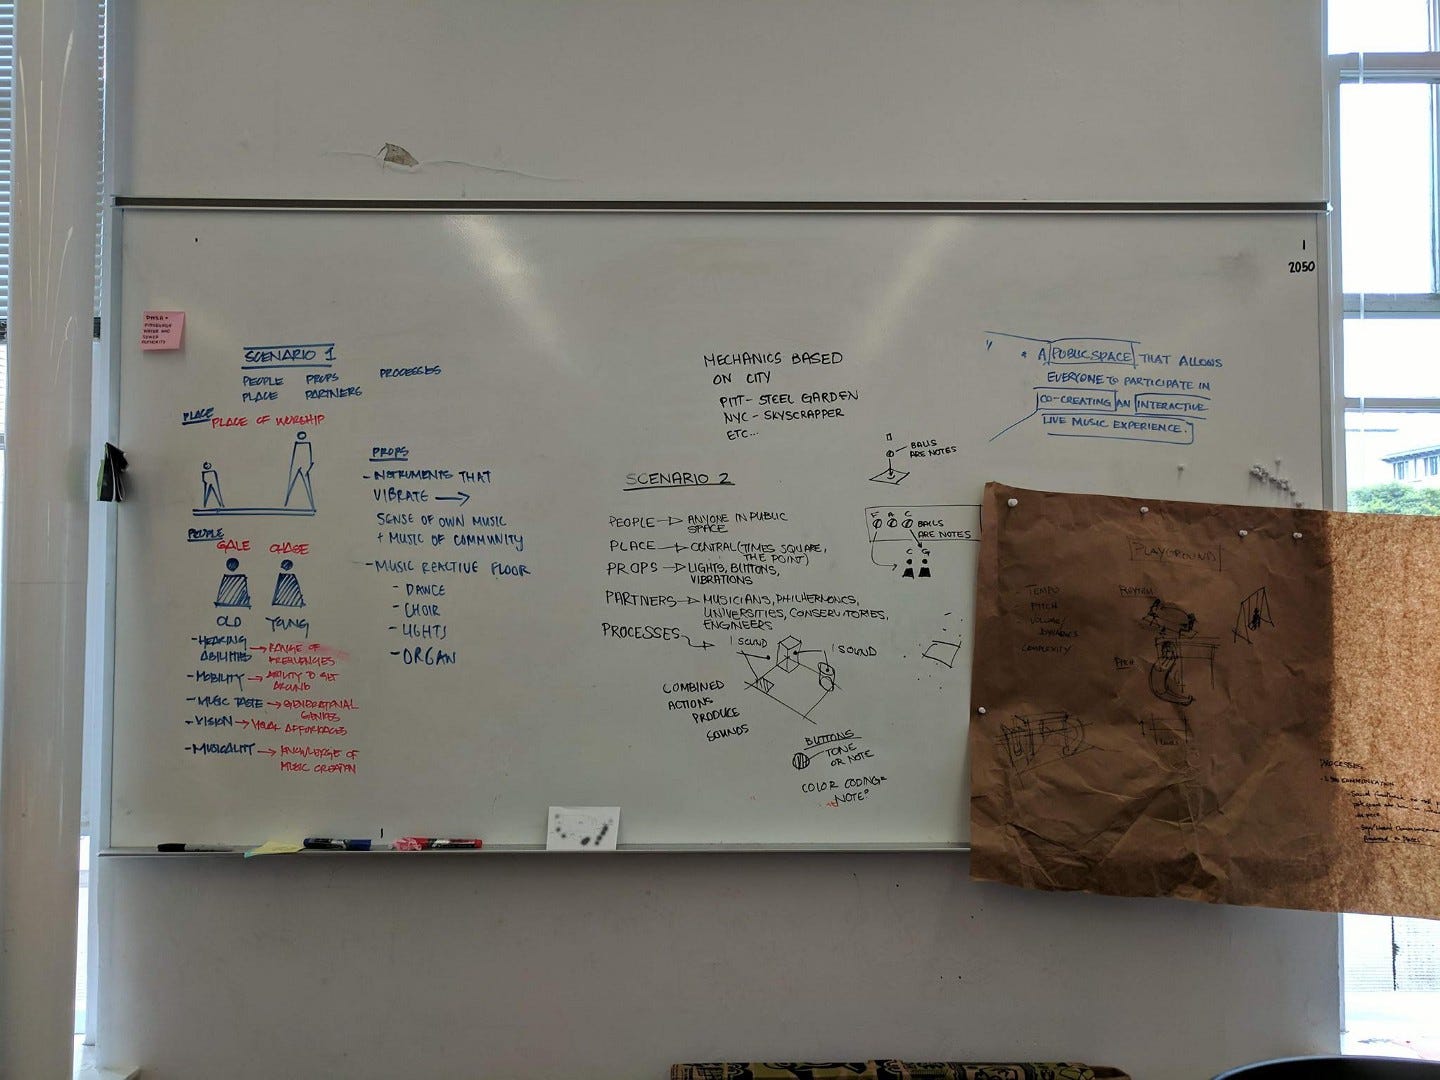 1
2050
PWSA =
PITTSBURGH
WATER AND
SEWER
AUTHORITY
SCENARIO 1
PEOPLE PROPS PROCESSES
PLACE PARTNERS
PLACE
PLACE OF WORSHIP
PEOPLE
GALE CHASE
OLD YOUNG
- HEARING ABILITIES → RANGE OF FREQUENCIES
- MOBILITY → ABILITY TO GET AROUND
- MUSIC TASTE → GENERATIONAL GENRES
- VISION → VISUAL AFFORDANCES
- MUSICALITY → KNOWLEDGE OF MUSIC CREATION
PROPS
- INSTRUMENTS THAT
VIBRATE →
SENSE OF OWN MUSIC
+ MUSIC OF COMMUNITY
- MUSIC REACTIVE FLOOR
- DANCE
- CHOIR
- LIGHTS
- ORGAN
MECHANICS BASED
ON CITY
PITT - STEEL GARDEN
NYC - SKYSCRAPPER
ETC...
SCENARIO 2
PEOPLE → ANYONE IN PUBLIC
SPACE
PLACE → CENTRAL (TIMES SQUARE,
THE POINT)
PROPS → LIGHTS, BUTTONS,
VIBRATIONS
PARTNERS → MUSICIANS, PHILHERMONICS,
UNIVERSITIES, CONSERVITORIES,
ENGINEERS
PROCESSES
1 SOUND
1 SOUND
COMBINED
ACTIONS
PRODUCE
SOUNDS
BUTTONS
TONE
OR NOTE
COLOR CODING =
NOTE?
BALLS
ARE NOTES
F A C
BALLS
ARE NOTES
C G
• A PUBLIC SPACE THAT ALLOWS
EVERYONE TO PARTICIPATE IN
CO-CREATING AN INTERACTIVE
LIVE MUSIC EXPERIENCE.
PLAYGROUND
- TEMPO
- PITCH
- VOLUME/
DYNAMICS
COMPLEXITY
RHYTHM
PITCH
PROCESSES